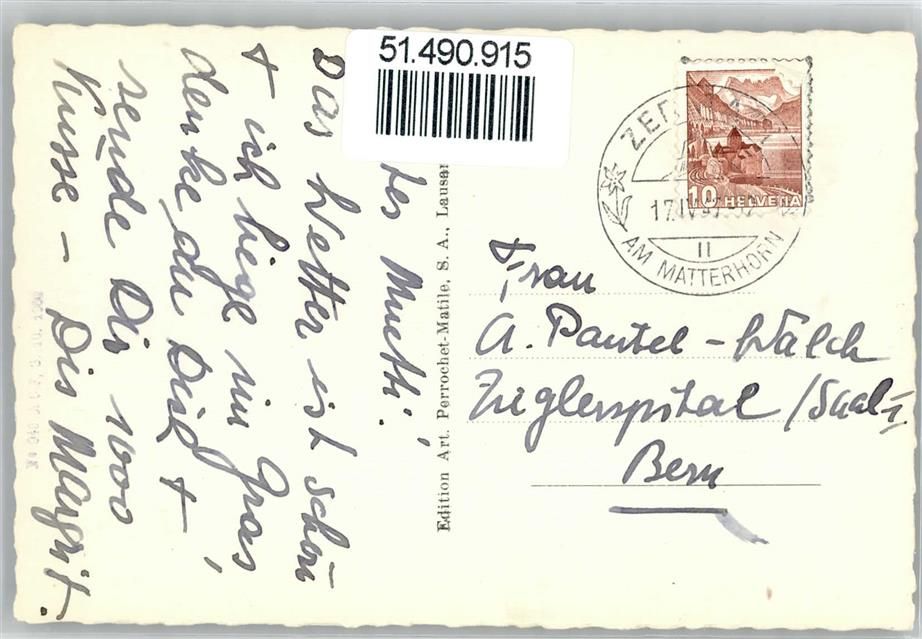 51.490.915
ZER
17.IV
II
AM MATTERHORN
10 HELVETIA
Frau
A. Pantel - Wälch
Zieglerspital /Saal
Bern
Edition Art. Perrochet-Matile, S. A., Lausan
tes Mutti!
Das Wetter ist schön
+ ich liege im Gras,
denke an Dich +
sende Dir 1000
Küsse - Dis Margrit.